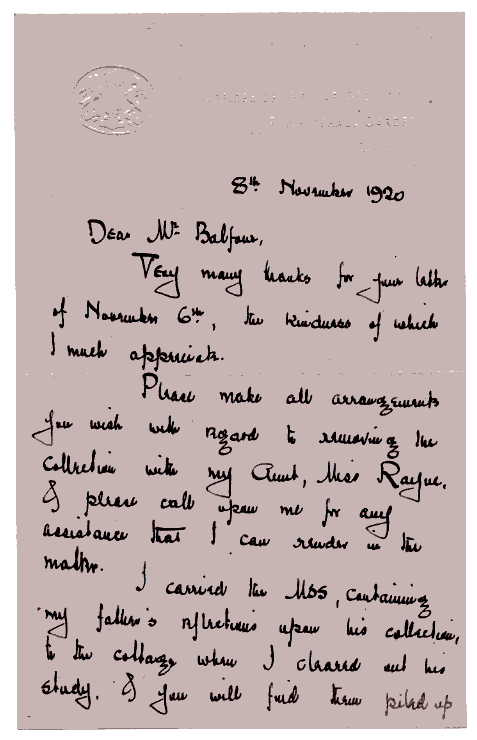 8th November 1920
Dear Mr Balfour,
Very many thanks for your letter
of November 6th, the kindness of which
I much appreciate.
Please make all arrangements
you wish with regard to removing the
collection with my Aunt, Miss Rayne,
& please call upon me for any
assistance that I can render in the
matter.
I carried the MSS, containing
my father's reflections upon his collection,
to the cottage when I cleared out his
study, & you will find them piled up